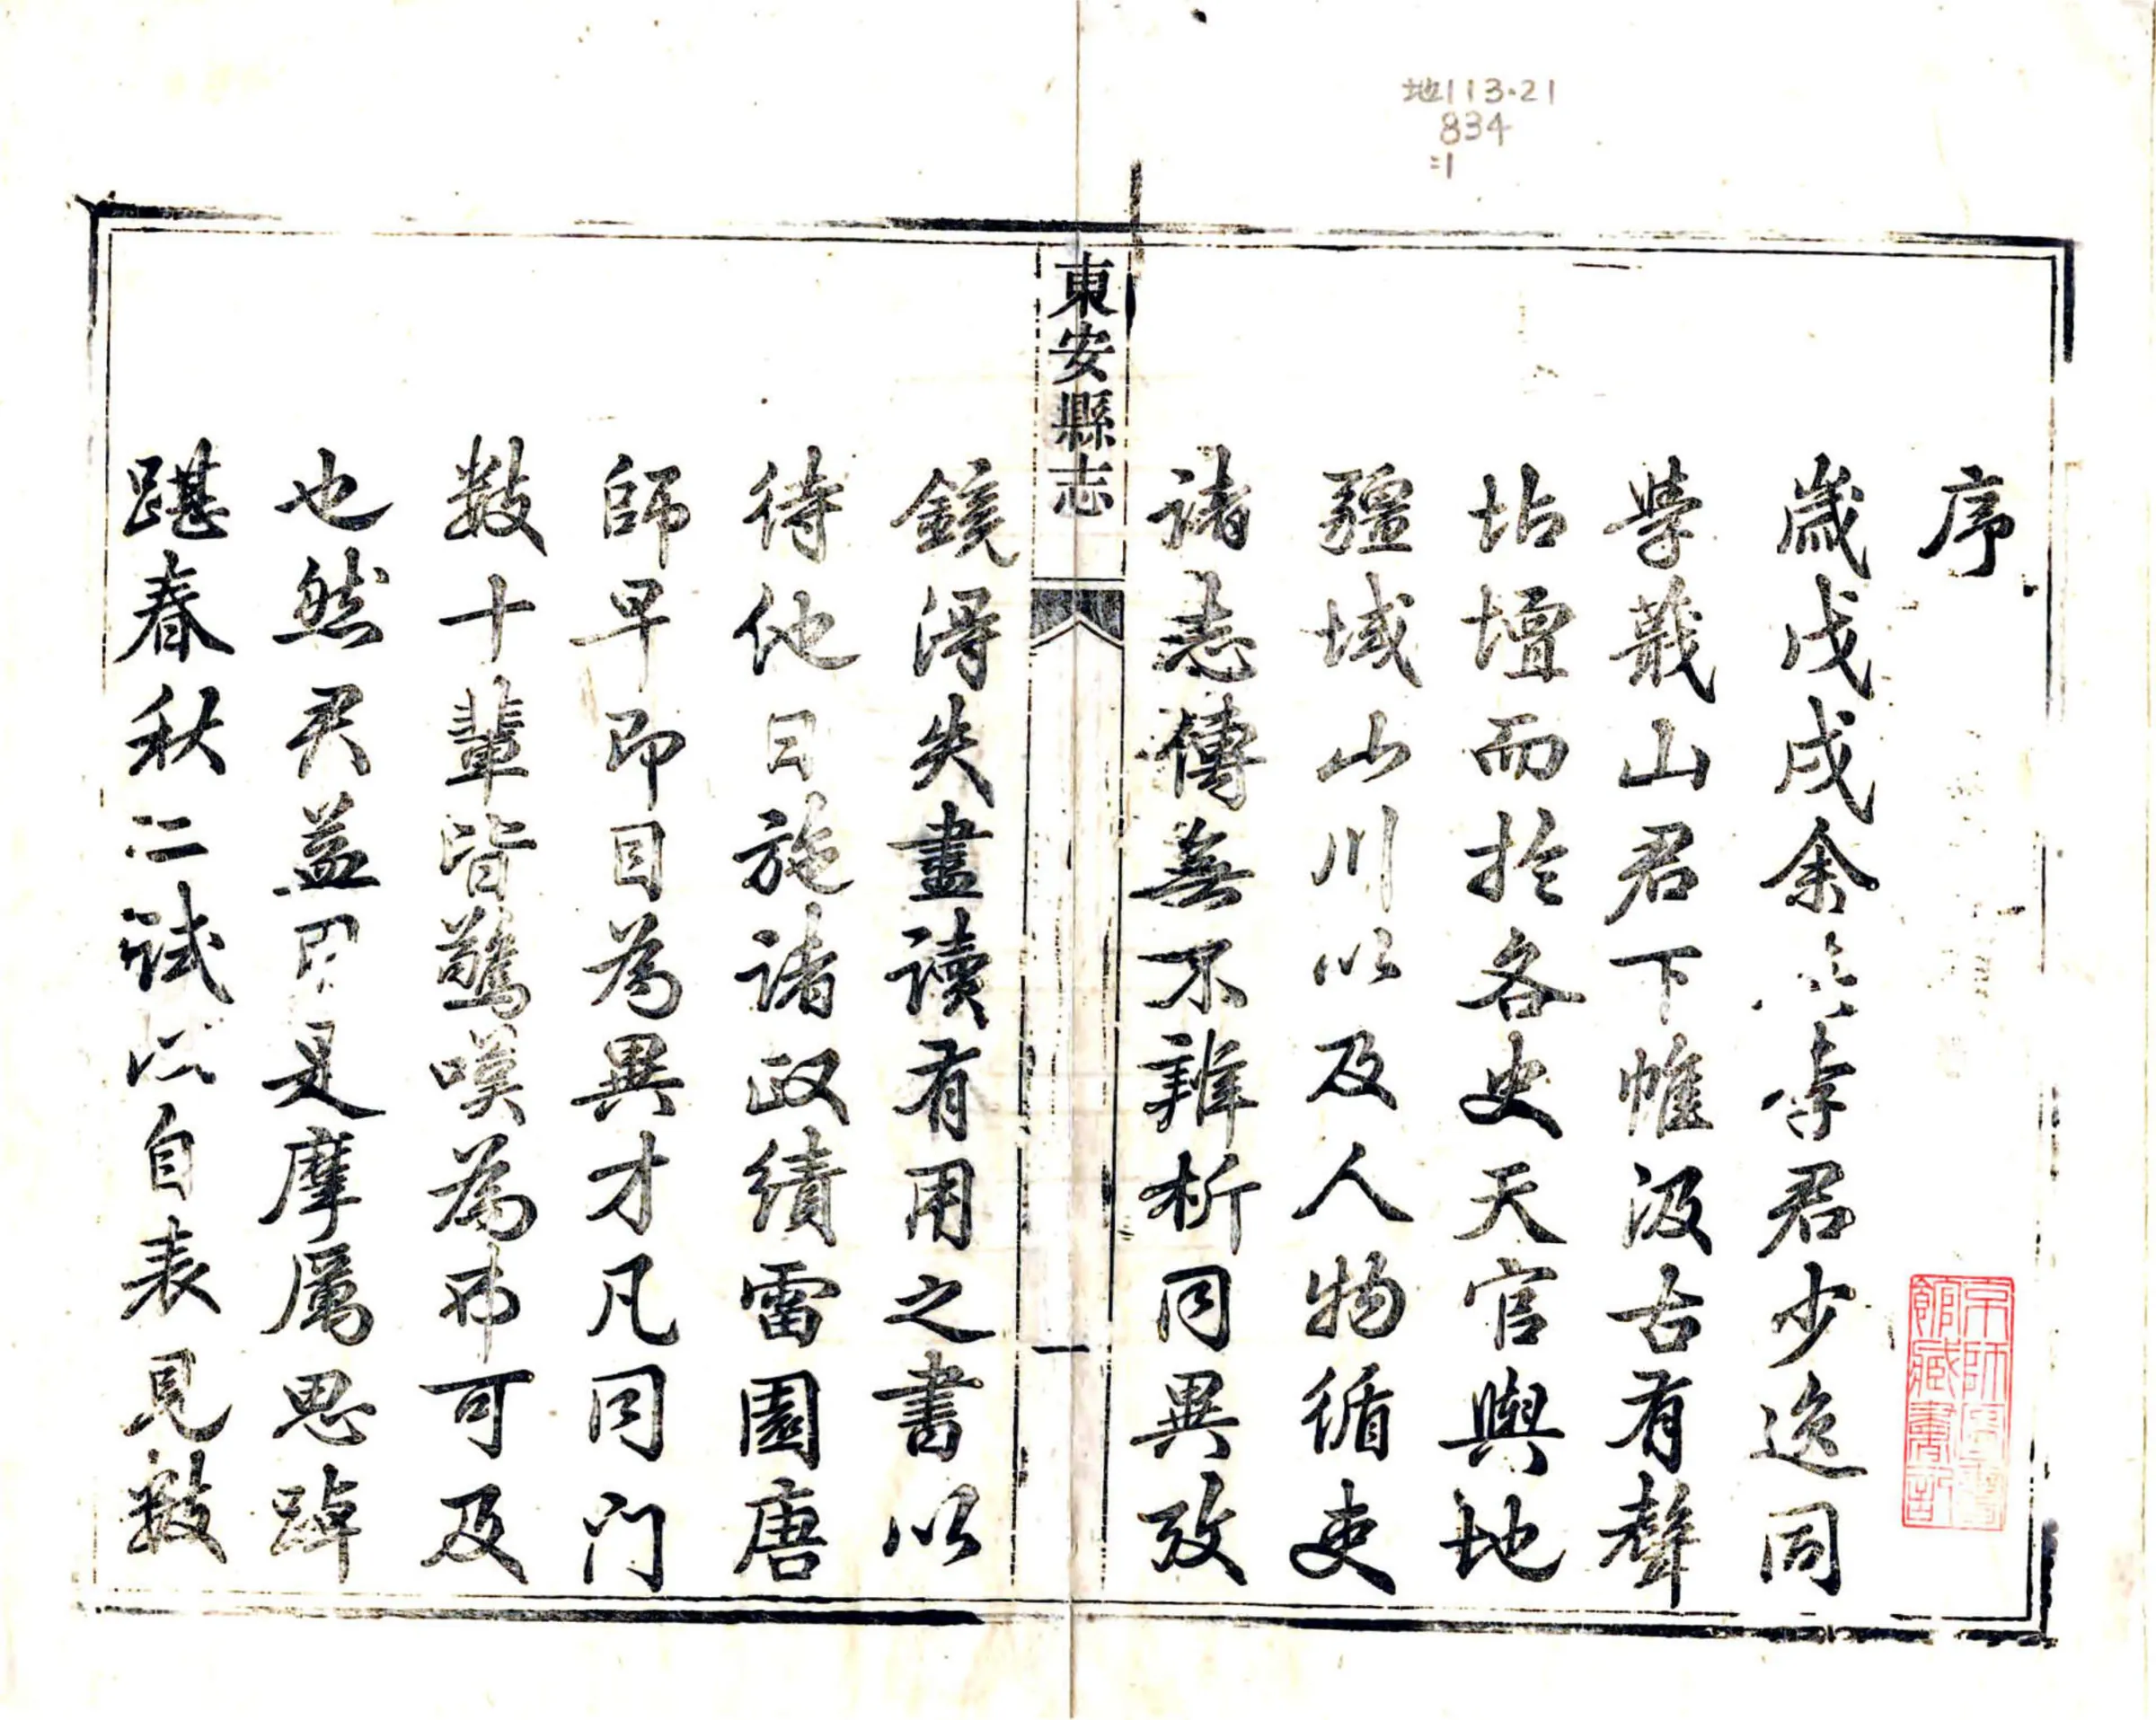 地113.21
834
:1
序
歲戊戌余與李君少逸同
學蕺山君下帷汲古有聲
坫壇而於各史天官輿地
疆域山川以及人物循吏
諸志傳無不辨析同異攷
東安縣志
一
鏡得失盡讀有用之書以
待他日施諸政績雷園唐
師早即目為異才凡同門
數十輩皆驚嘆為弗可及
也然君益因是摩厲思踔
踸春秋二試以自表見數
京師圖書
館藏書記